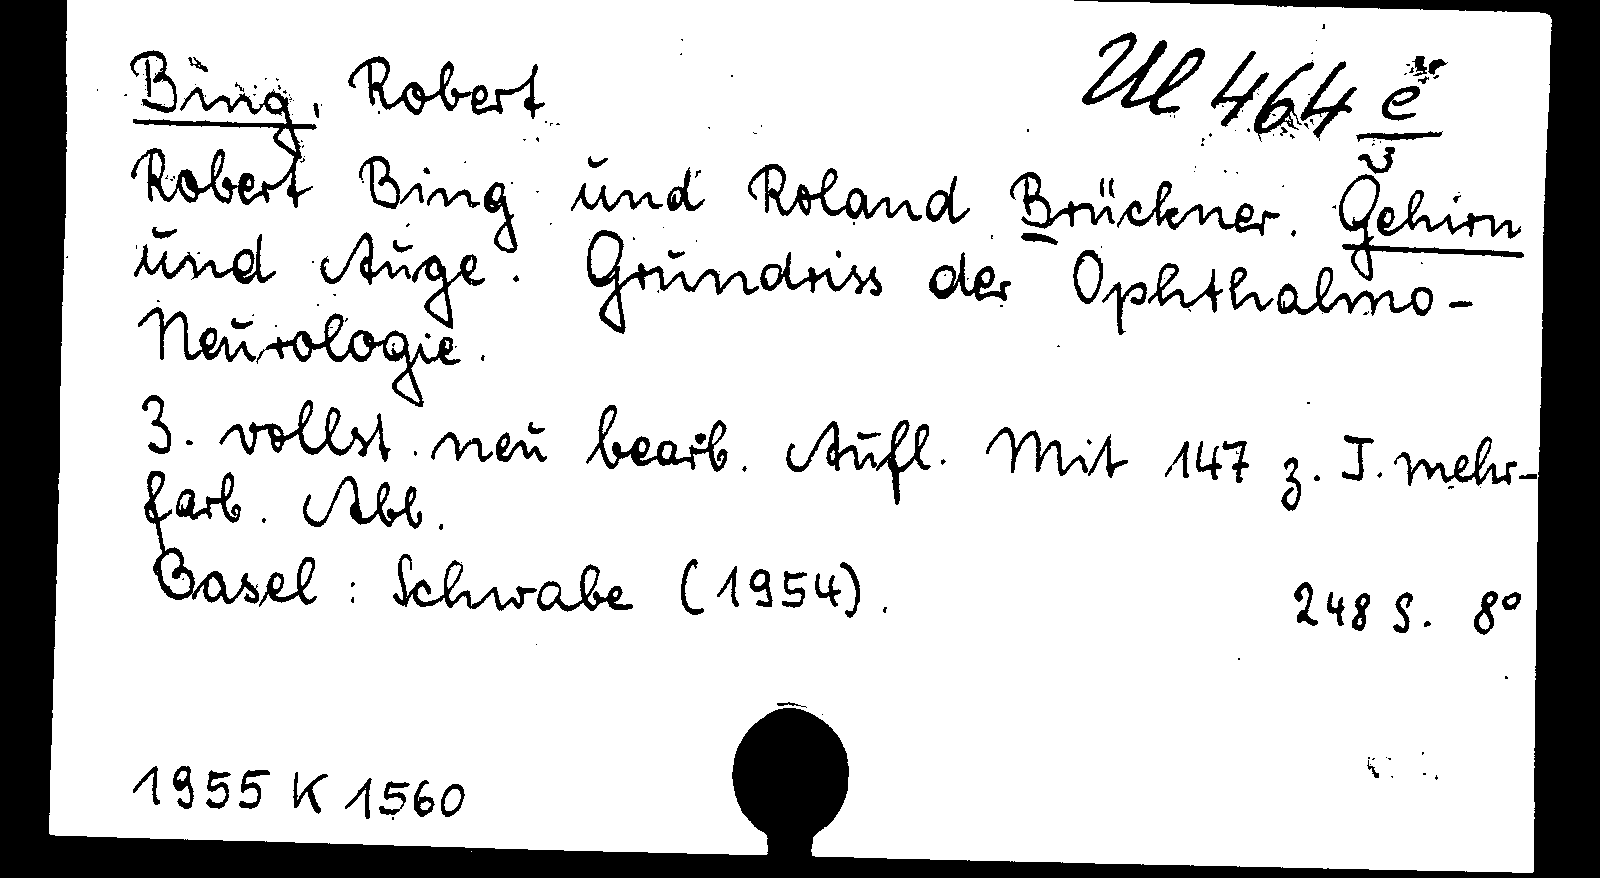 Bing, Robert
Ul 464 e
3
Robert Bing und Roland Brückner. Gehirn
und Auge. Grundriss der Ophthalmo-
Neurologie.
3. vollst. neu bearb. Aufl. Mit 147 z. T. mehr-
farb. Abb.
Basel: Schwabe (1954). 248 S. 8°
1955 K 1560